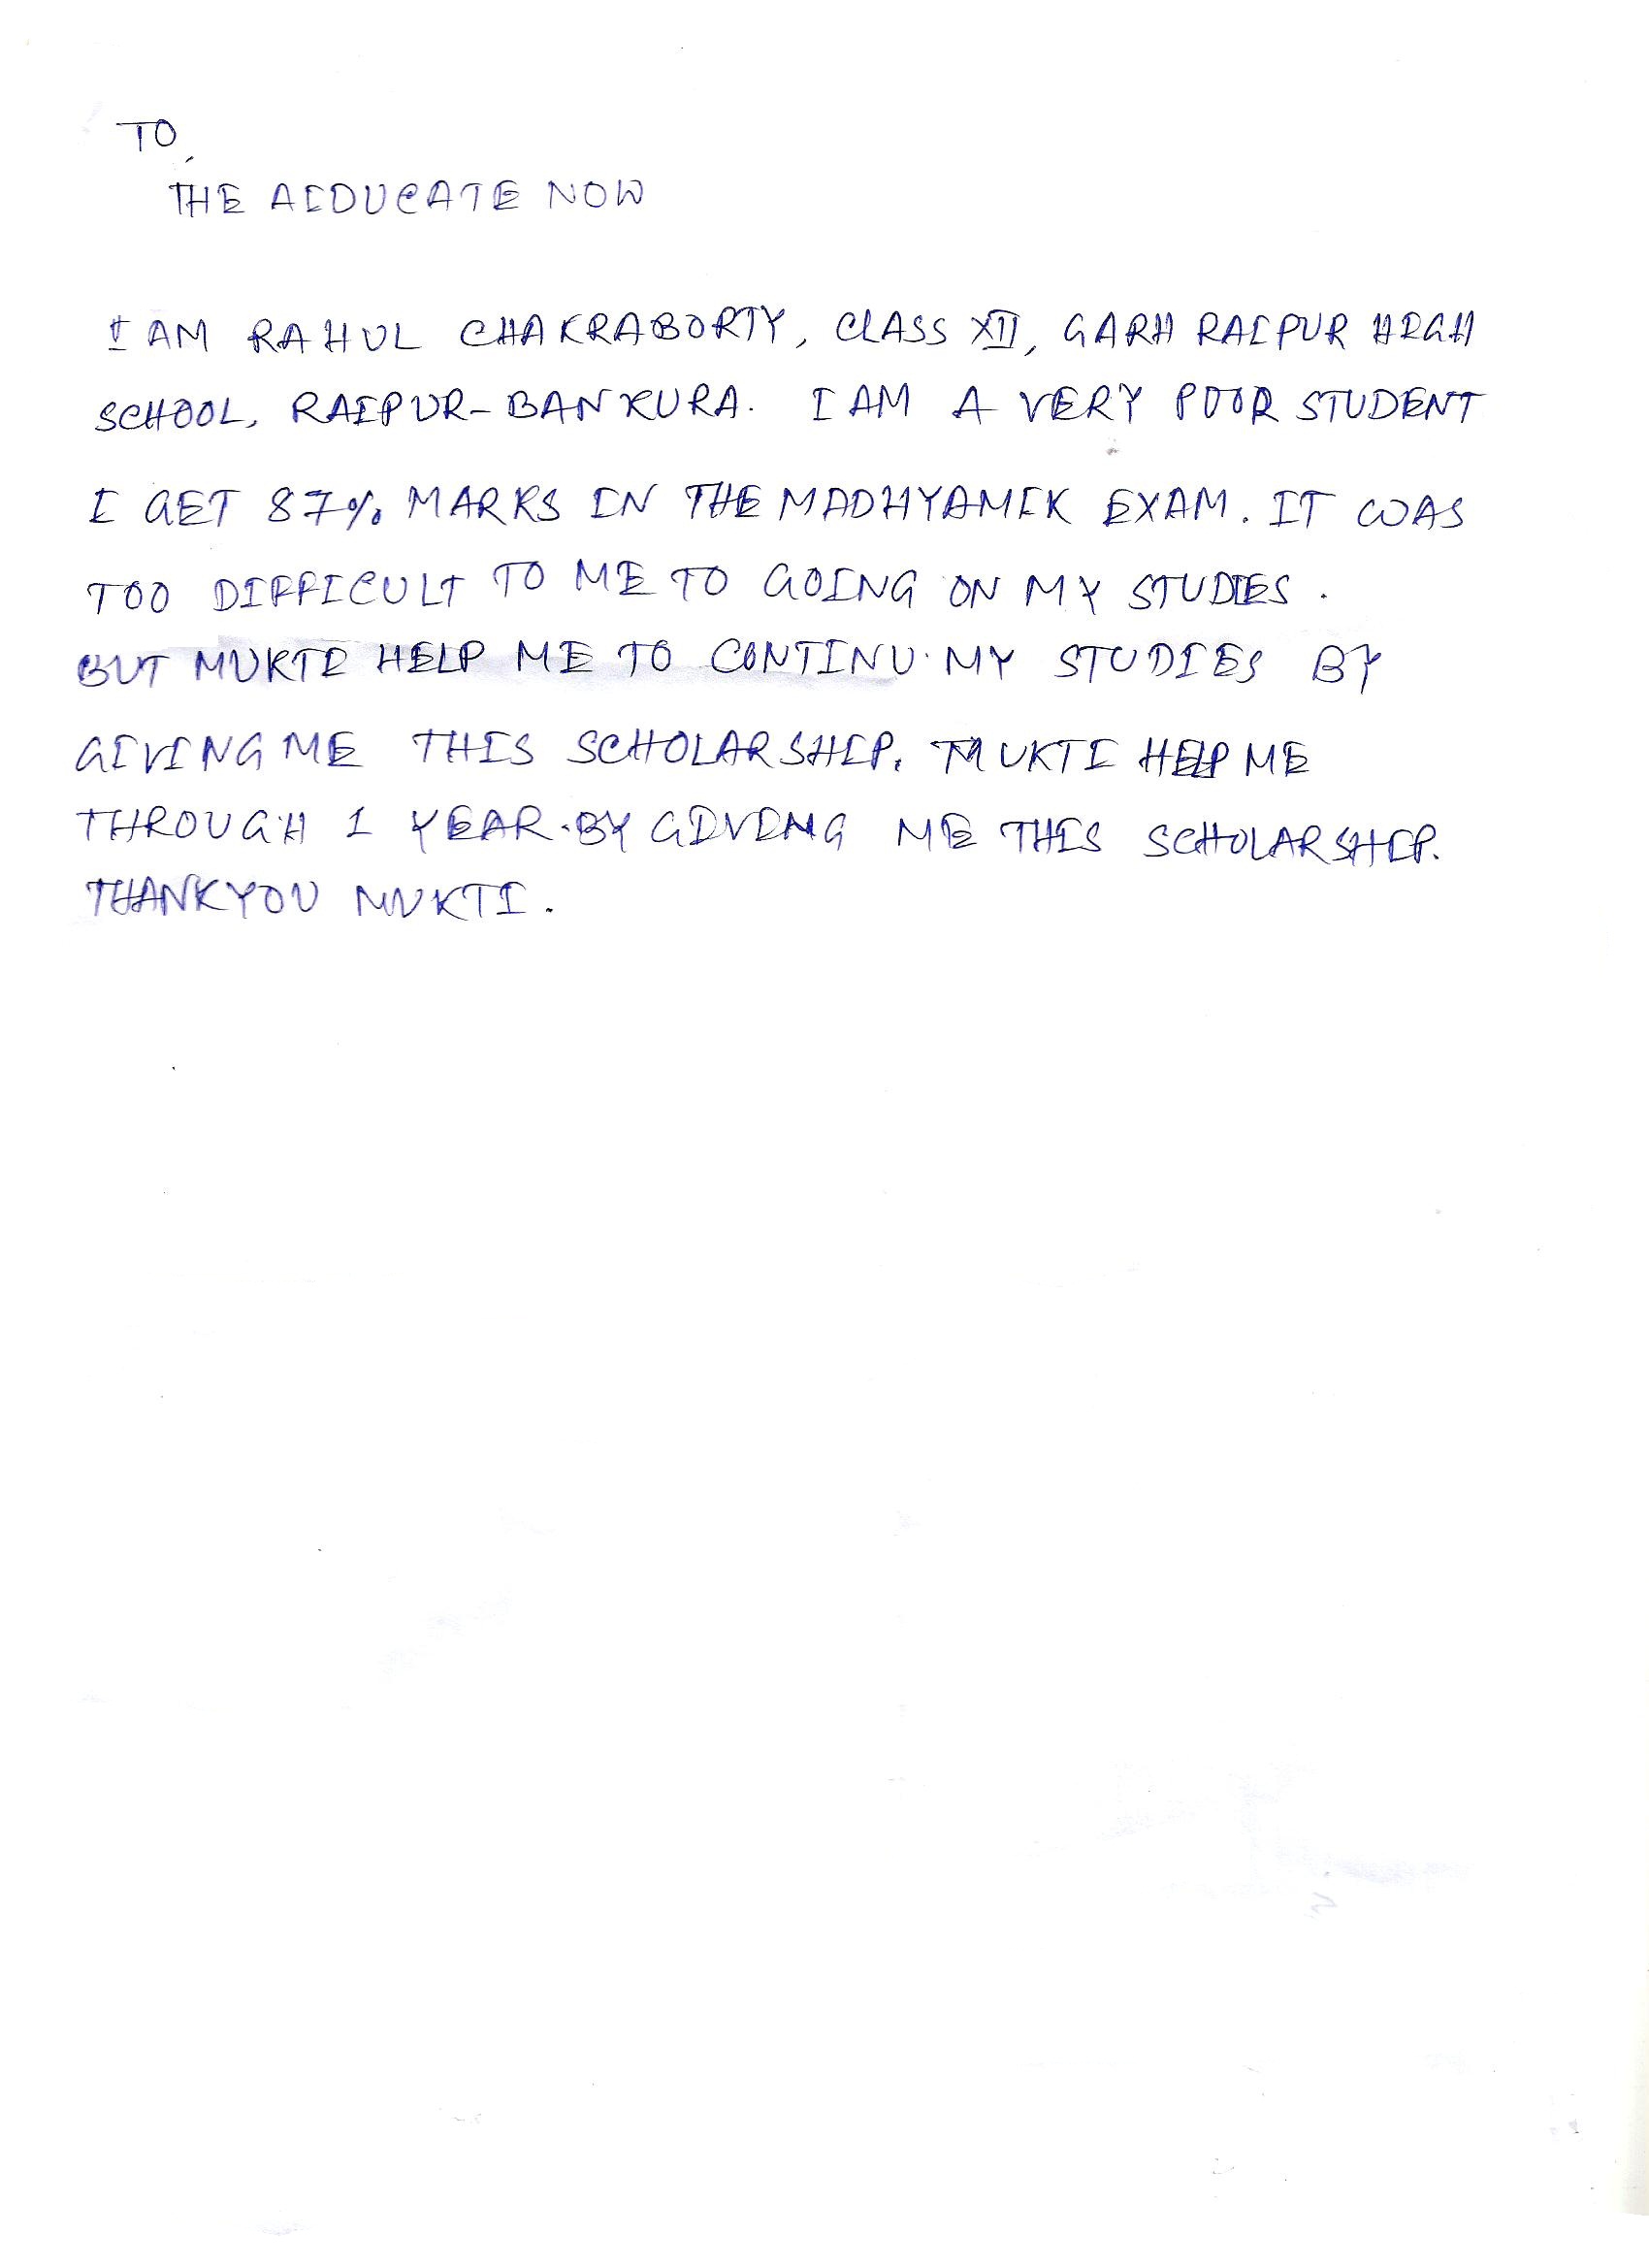 TO,
THE AIDUCATE NOW
I AM RAHUL CHAKRABORTY, CLASS XII, GARH RAIPUR HIGH
SCHOOL, RAIPUR-BANKURA. I AM A VERY POOR STUDENT
I GET 87% MARKS IN THE MADHYAMIK EXAM. IT WAS
TOO DIFFICULT TO ME TO GOING ON MY STUDIES.
BUT MUKTI HELP ME TO CONTINU. MY STUDIES BY
GIVING ME THIS SCHOLARSHIP. MUKTI HELP ME
THROUGH 1 YEAR.BY GIVING ME THIS SCHOLARSHIP.
THANKYOU MUKTI.